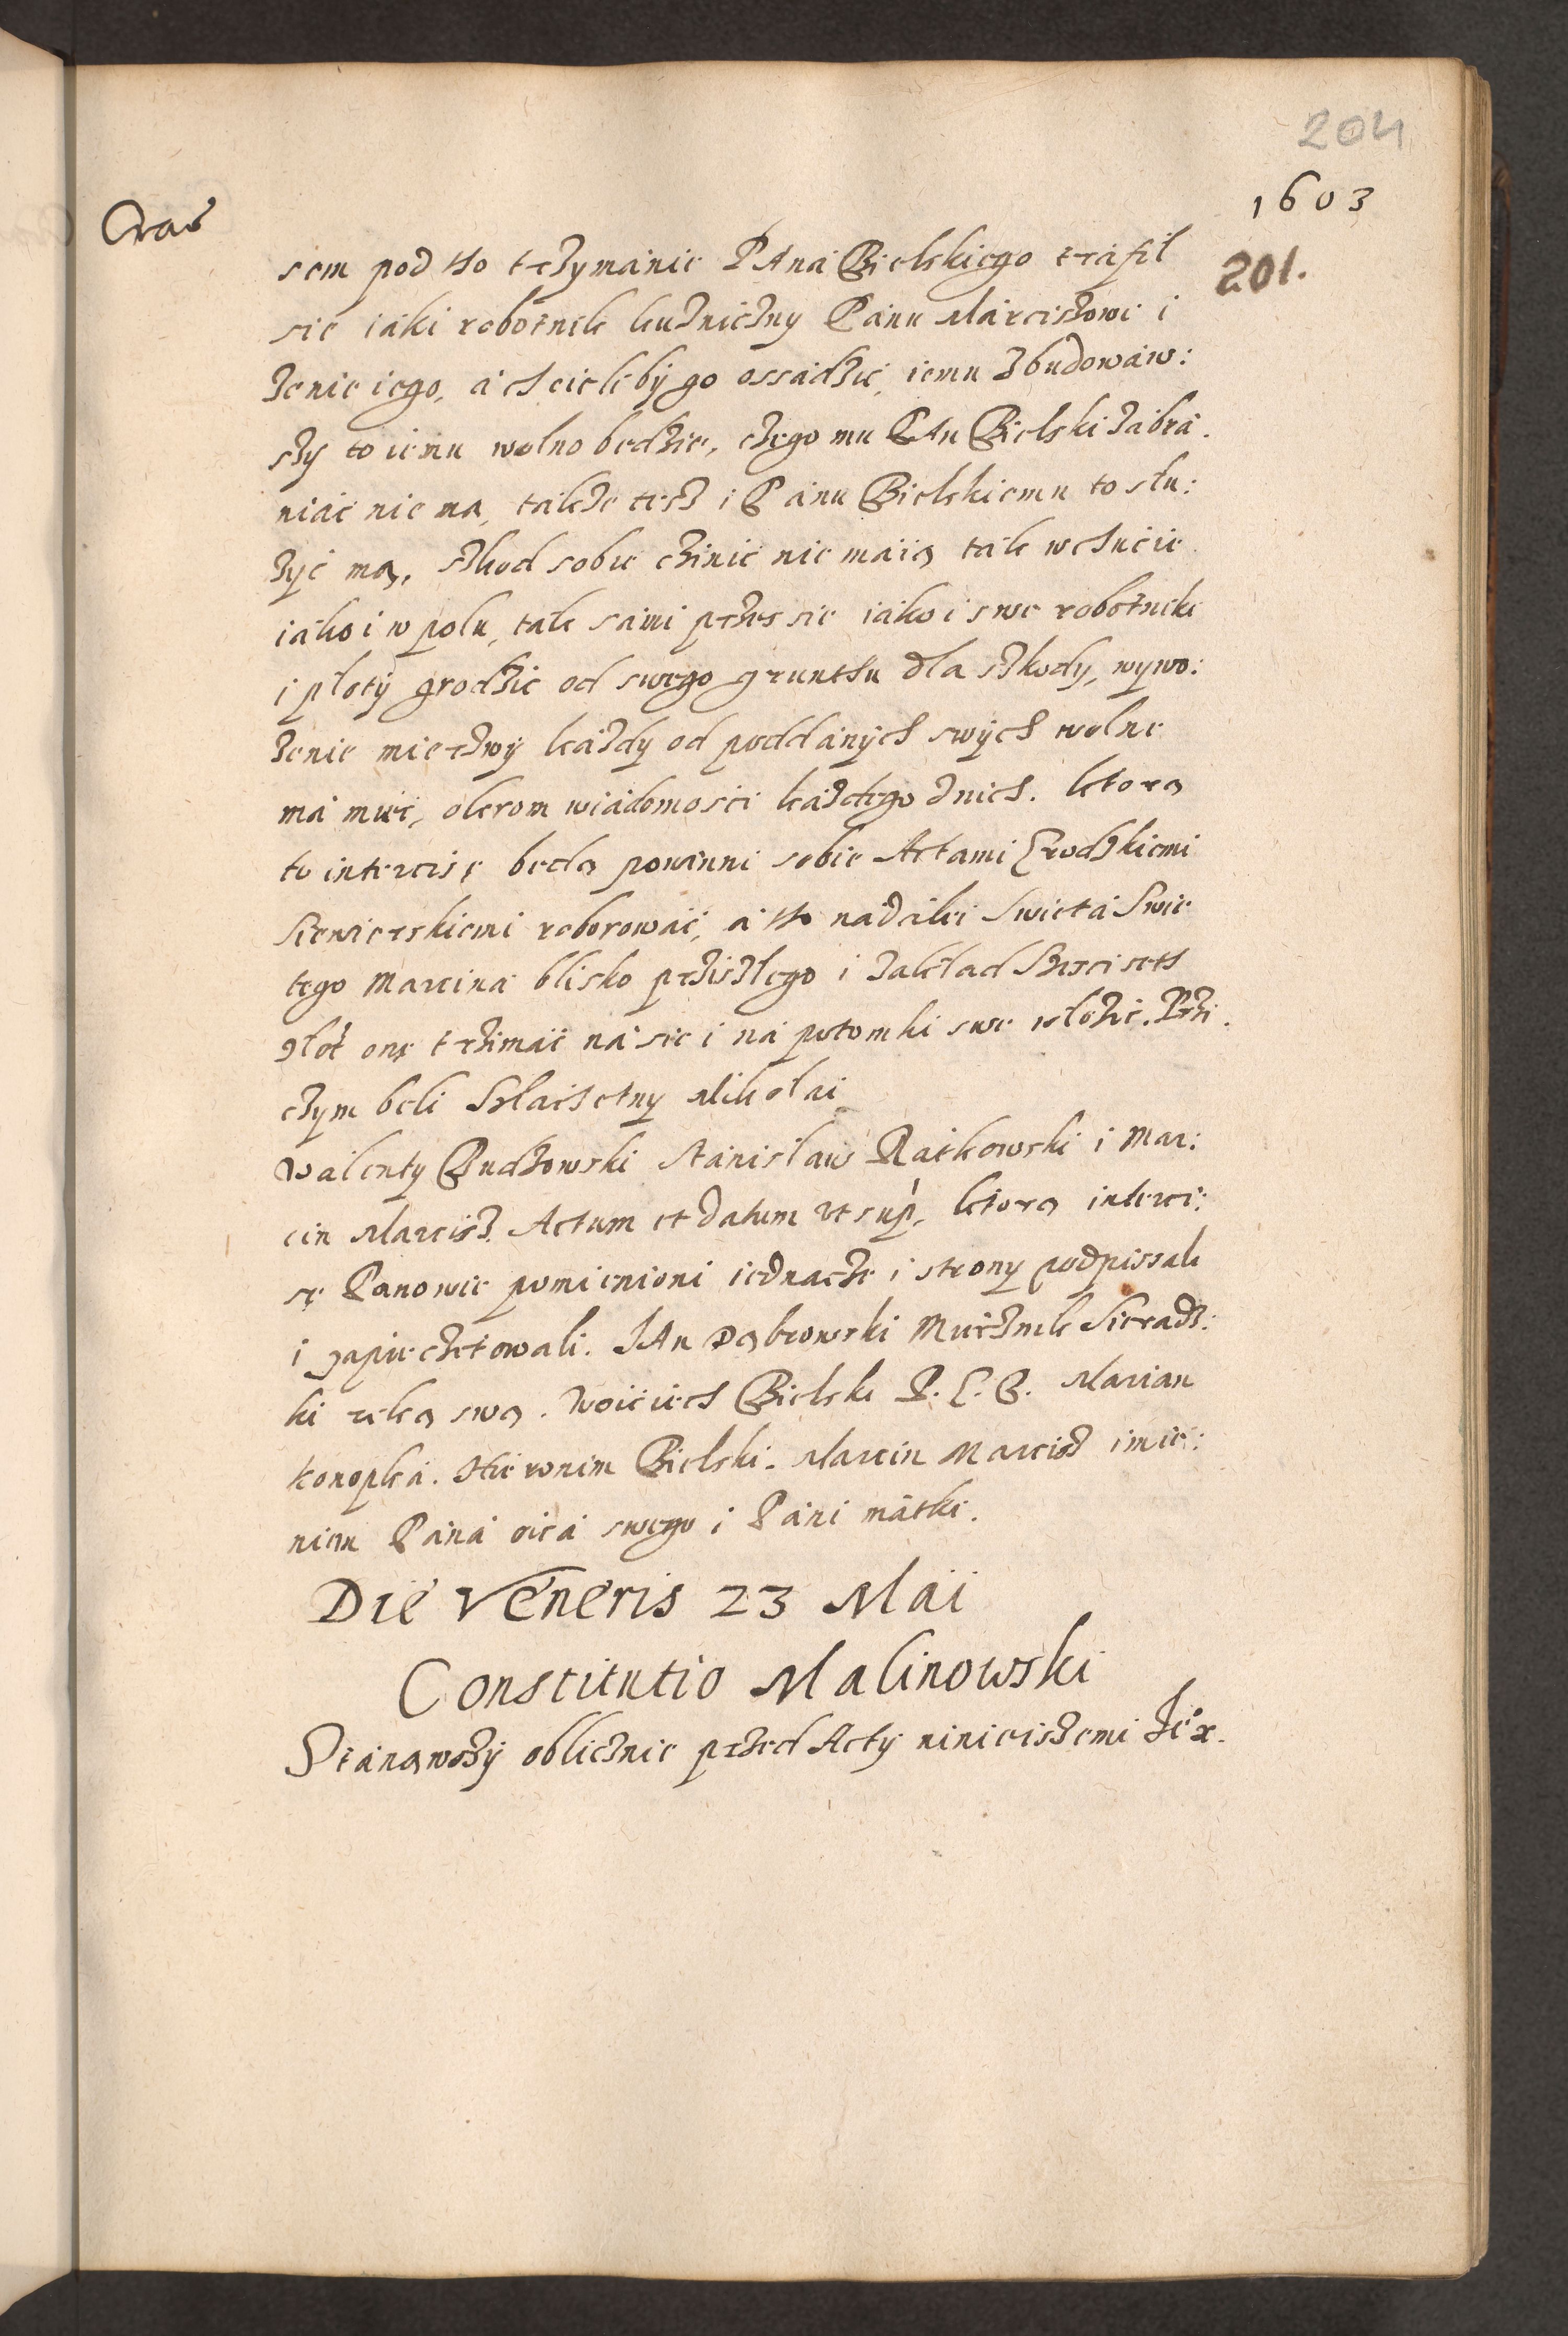 204
1603
201.
sem pod tto trzymanie PAna Bielskiego trafil
sie iaki robotnik kuzniczny Panu Marciszowi i
zenie iego, a chcieliby go ossadzic, iemu zbudowaw:
szy to iemu wolno bedzie, czego mu PAn Bielski zabra.
niac nie ma, takze tesz i Panu Bielskiemu to slu:
zyc ma, szkod sobie czinic nie maią tak w chucie
iako i w polu, tak sami przes sie iako i swe robotniki
i ploty grodzic od swego grunthu dla szkody, wywo:
zenie mierzwy kazdy od poddanych swych wolne
ma miec, okrom wiadomosci kazdego znich. ktorą
to intercisę będą powinni sobie Actami Grodzkiemi
Sieradskiemi roborowac, a tto nadalei Swieta Swie
tego Marcina blisko prziszlego i zaklad Szesciseth
zlot onę trzimac na sie i na potomki swe wlozic. Przi.
czym beli Szlachetny Mikolai
Walenty Budzowski Stanislaw Ratkowski i Mar:
cin Marcisz. Actum et datum ut sup, ktorą interci:
sę Panowie pomienioni iednacze i strony podpissali
i zapieczetowali. JAn Dąbrowski Miecznik Sieradz:
ki ręką swą. Woiciech Bielski P. G. B. Marian
Konopka. Hieronim Bielski. Marcin Marcisz imie:
niem Pana oica swego i Pani matki.
Die Veneris 23 Maii
Constitutio Malinowski
Stanąwszy oblicznie przed Acty ninieiszemi